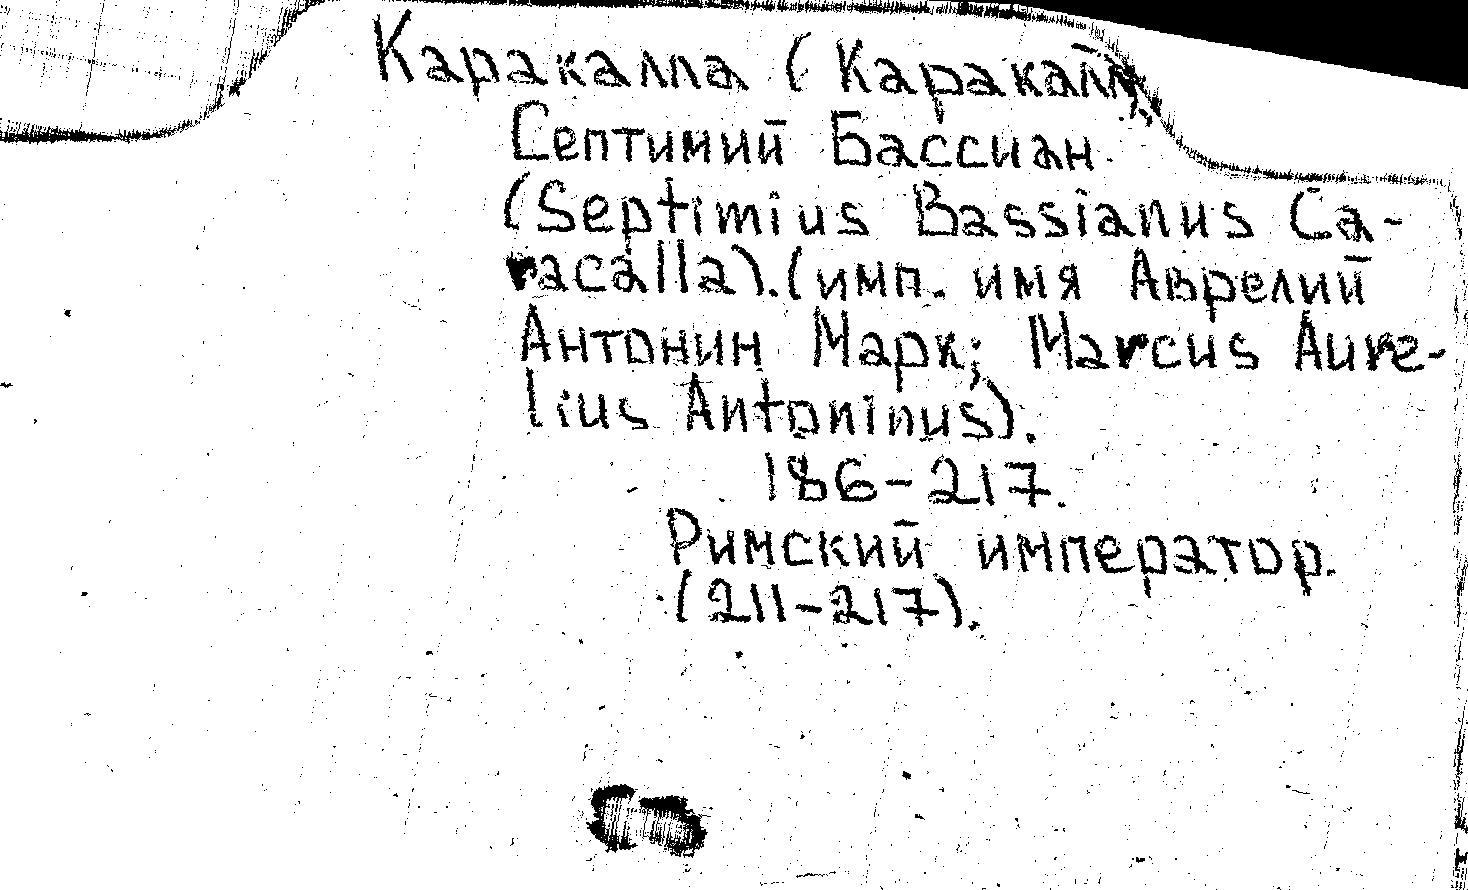 Каракалла (Каракалл)
Септимий Бассиан
(Septimius Bassianus Ca-
racalla).(имп. имя Аврелий
Антонин Марк; Marcus Aure-
lius Antoninus).
186-217.
Римский император.
(211-217).